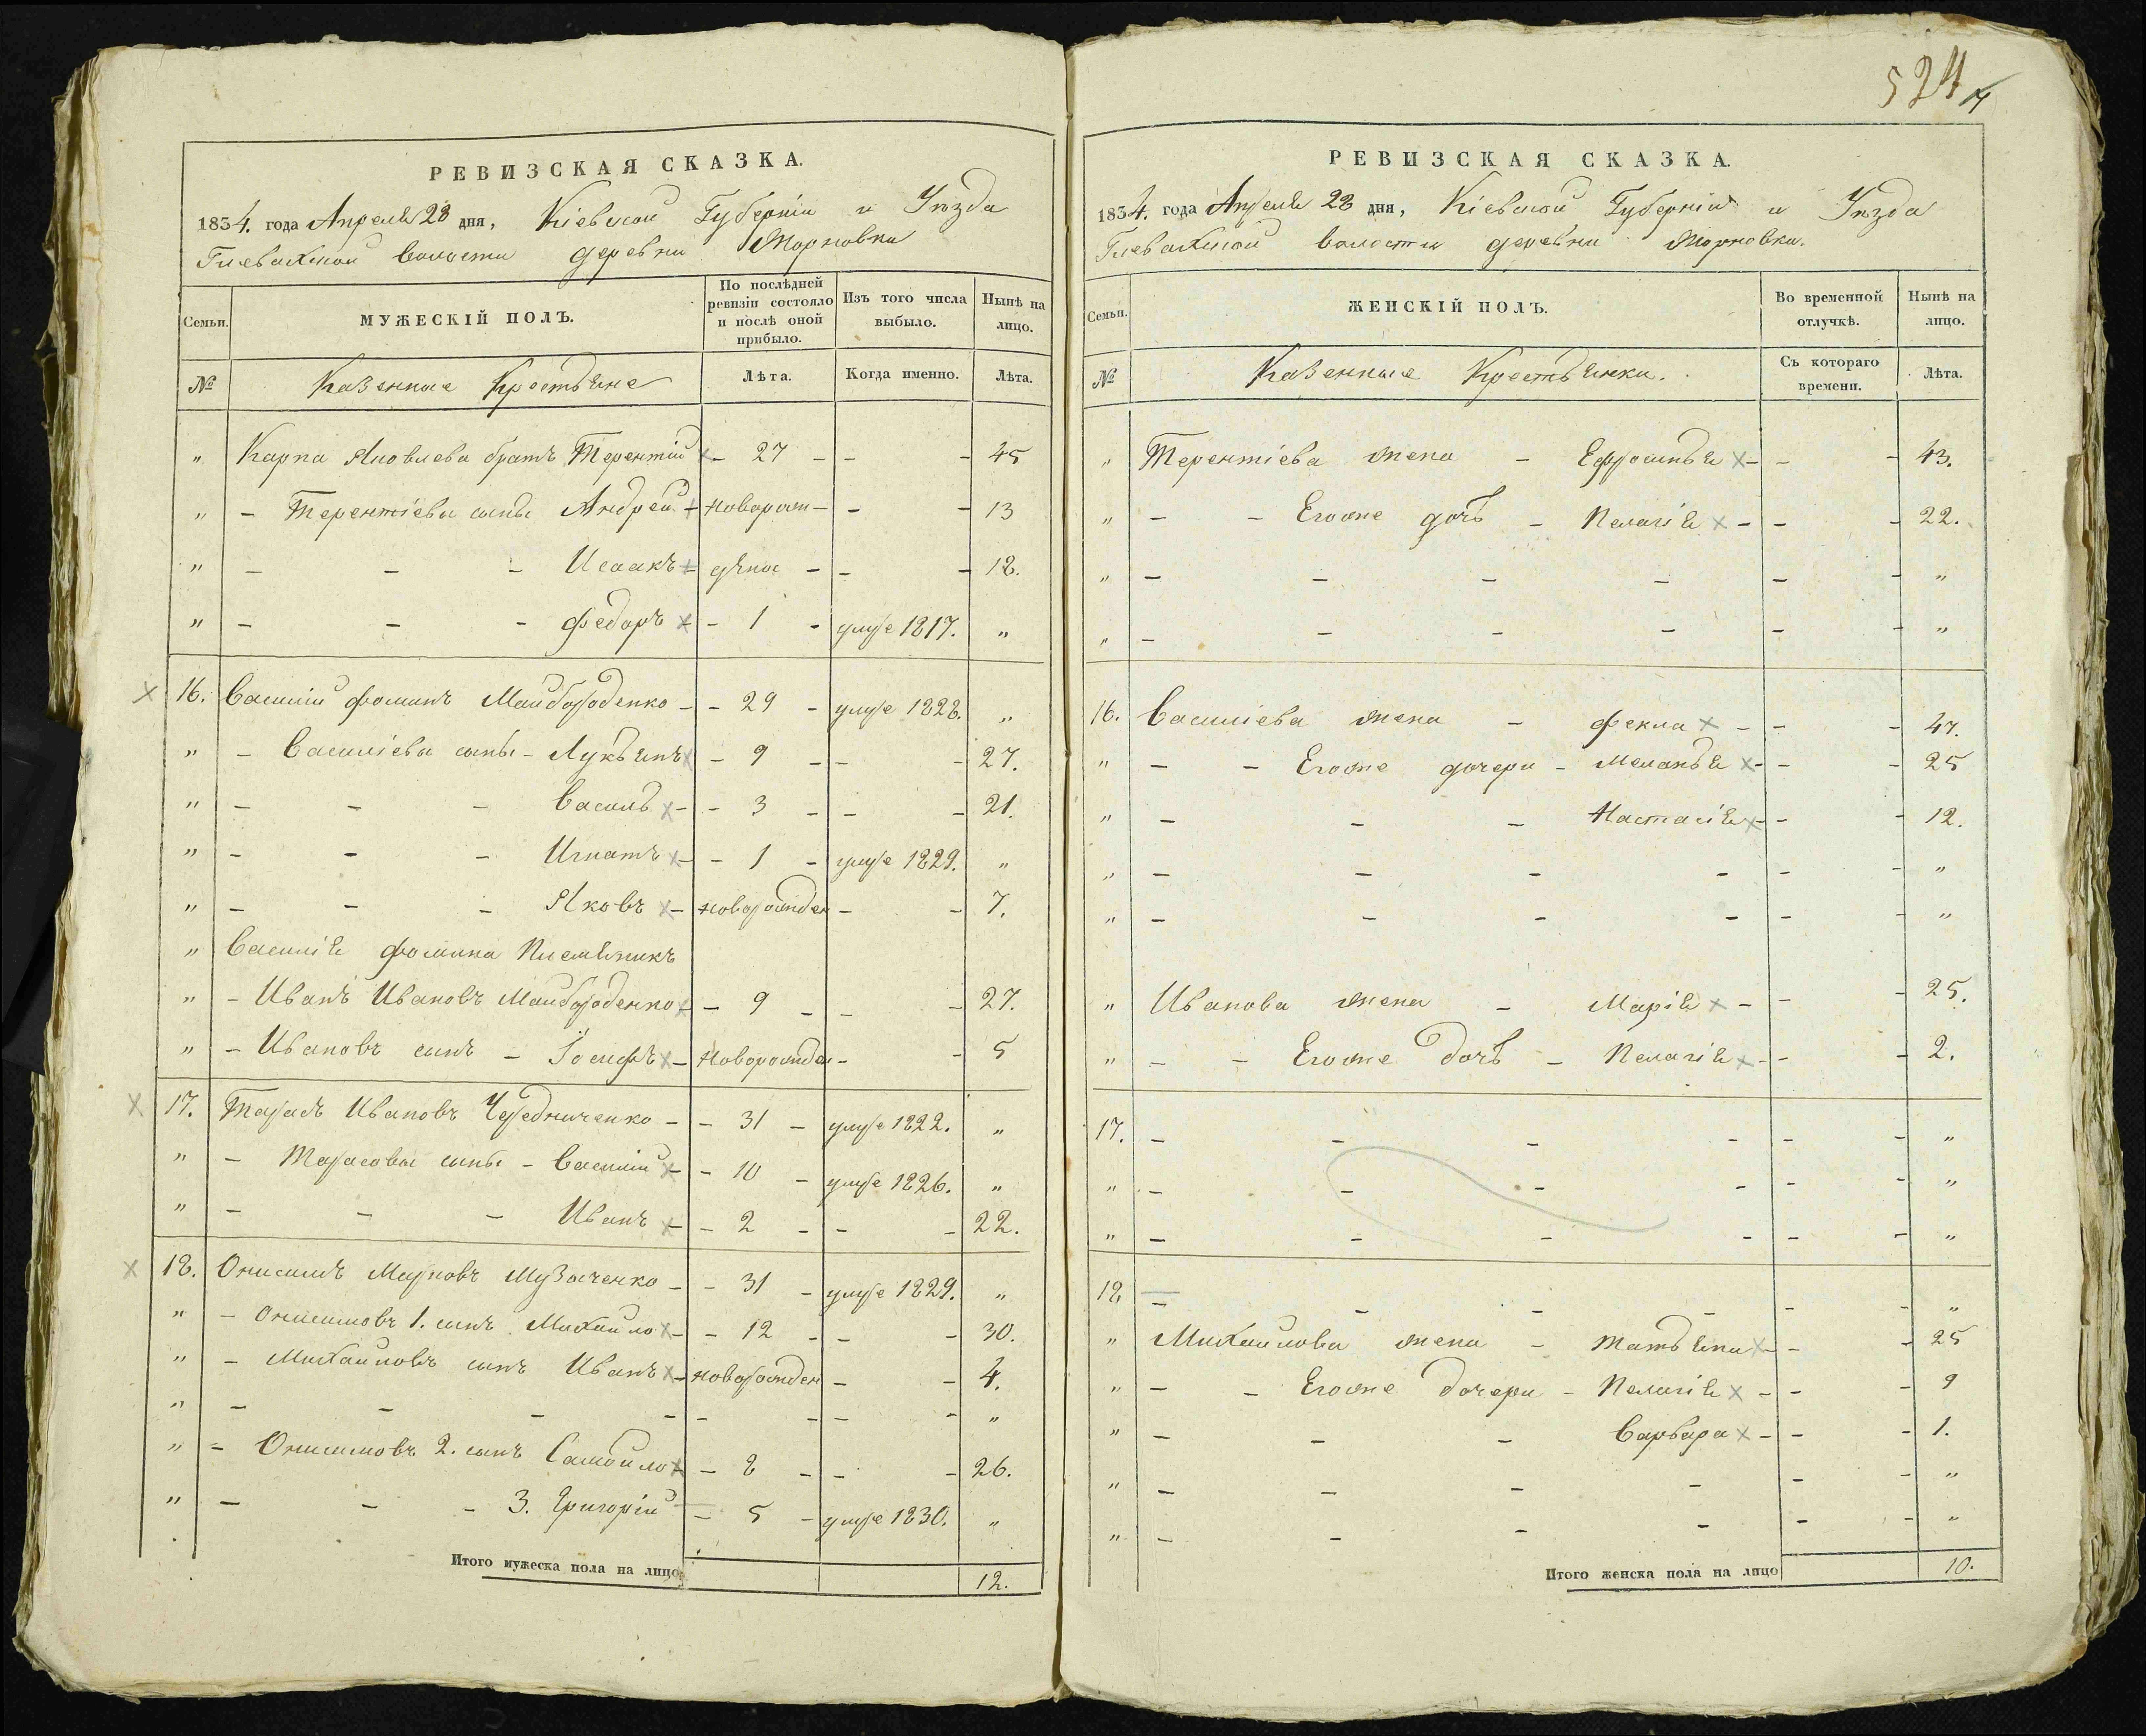 524
14
РЕВИЗСКАЯ СКАЗКА.
1834. года Апреля 28 дня, Кіевской Губерніи и Уезда
Глевахской волости деревни Жорновки
Семьи.
МУЖЕСКІЙ ПОЛЪ.
По послѣдней ревизіи состояло и послѣ оной прибыло.
Изъ того числа выбыло.
Нынѣ на лицо.
№
Казенные Крестьяне
Лѣта.
Когда именно.
Лѣта.
" Карпа Яковлева братъ Терентій - 27 - - - 45
" - Терентіевы сыны Андрей - новорож - - - 13
" - - - Исаакъ - дено - - - 12.
" - - - Федоръ - 1 - умре 1817. "
16. Василій Фоминъ Майбороденко - - 29 - умре 1828. "
" - Василіевы сыны - Лукьянъ - 9 - - - 27.
" - - - Василь - - 3 - - - 21.
" - - - Игнатъ - - 1 - умре 1829. "
" - - - Яковъ - новорожден - - 7.
" Василія Фомина Племянникъ
" - Иванъ Ивановъ Майбороденко - 9 - - - 27.
" - Ивановъ сынъ - Іосифъ - Новорожден - - 5
17. Тарасъ Ивановъ Чередниченко - - 31 - умре 1822. "
" - Тарасовы сыны - Василій - - 10 - умре 1826. "
" - - - Иванъ - - 2 - - - 22.
18. Онисимъ Марковъ Музыченко - - 31 - умре 1829. "
" - Онисимовъ 1. сынъ Михайло - - 12 - - - 30.
" - Михайловъ сынъ Иванъ - новорожден - - 4.
" - - - - - - - - "
" - Онисимовъ 2. сынъ Самойло - 8 - - - 26.
" - - - 3. Григорій - 5 - умре 1830. "
Итого мужеска пола на лицо 12.
РЕВИЗСКАЯ СКАЗКА.
1834. года Апреля 28 дня, Кіевской Губерніи и Уезда
Глевахской волости деревни Жорновки.
Семьи.
ЖЕНСКІЙ ПОЛЪ.
Во временной отлучкѣ.
Нынѣ на лицо.
№
Казенные Крестьянки.
Съ котораго времени.
Лѣта.
" Терентіева жена - Ефросинья - - - 43.
" - - Егоже дочь - Пелагія - - - 22.
" - - - - - - "
" - - - - - - "
16. Василіева жена - Фекла - - - 47.
" - - Егоже дочери - Меланья - - - 25
" - - - Настасія - - - 12.
" - - - - - - "
" - - - - - - "
" Иванова жена - Марія - - - 25.
" - - Егоже дочь - Пелагія - - - 2.
17. - - - - - - "
" - - - - - - "
" - - - - - - "
18 - - - - - - "
" Михайлова жена - Татьяна - - - 25
" - - Егоже дочери - Пелагія - - - 9
" - - - Варвара - - - 1.
" - - - - - - "
" - - - - - - "
Итого женска пола на лицо 10.